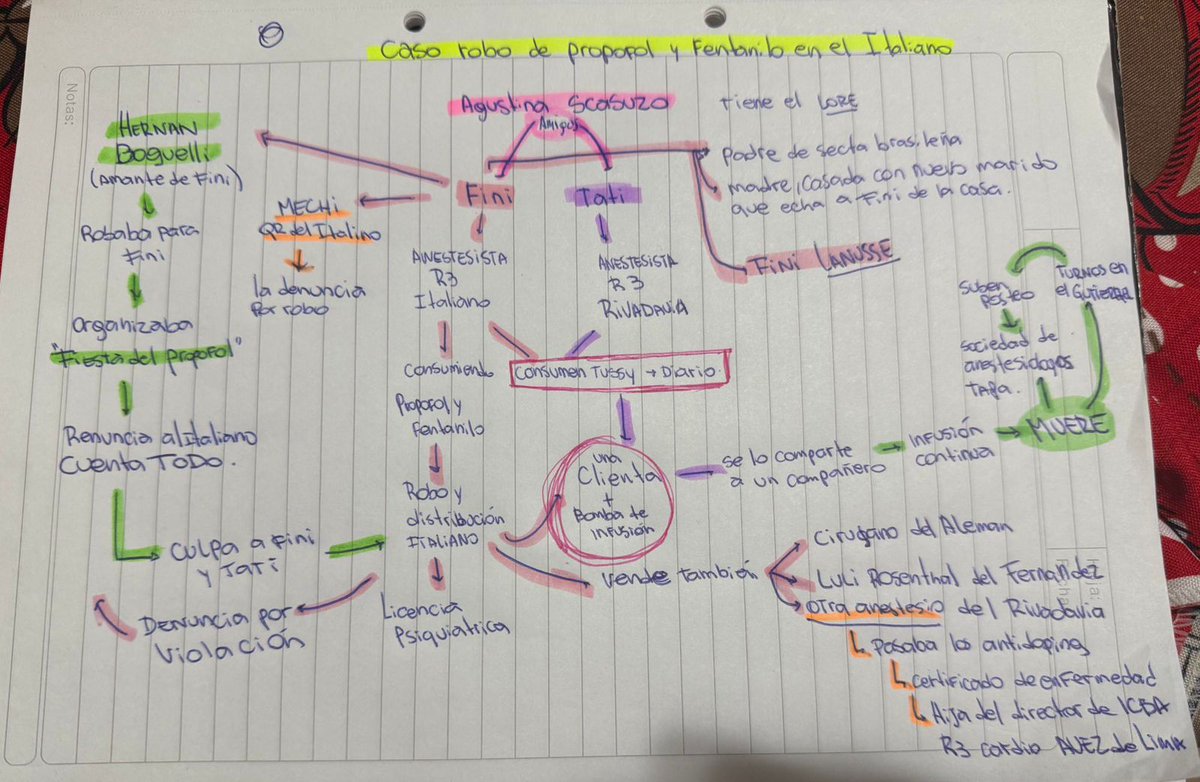 Notas:
Caso robo de propofol y Fentanilo en el Italiano
Agustina SCOSUZO tiene el LORE
Amigos
HERNAN
Boguelli
(Amante de Fini)
Robaba para
Fini
Organizaba
"Fiesta del propofol"
Renuncia al Italiano
cuenta TODO.
culpa a Fini
y Tati
Denuncia por
violación
MECHI
QR del Italino
la denuncia
por robo
Fini
ANESTESISTA
R3
Italiano
Consumiendo
Propofol y
Fentanilo
Robo y
distribución
ITALIANO
Licencia
Psiquiatrica
Tati
ANESTESISTA
R3
RIVADAVIA
Consumen Tussy → Diario.
una
Clienta
+
Bomba de
infusión
padre de secta brasileña
madre, casada con nuevo marido
que echa a Fini de la casa.
Fini LANUSSE
se lo comparte
a un compañero
INFUSIÓN
continua
MUERE
TURNOS en
el GUTIERREZ
Suben
posteo
sociedad de
anestesiologos
TAPA.
vende también
Cirujano del Aleman
Luli Rosenthal del Fernandez
otra anestesio del Rivadavia
Pasaba los antidoping
certificado de enfermedad
Hija del director de ICBA
R3 cardio